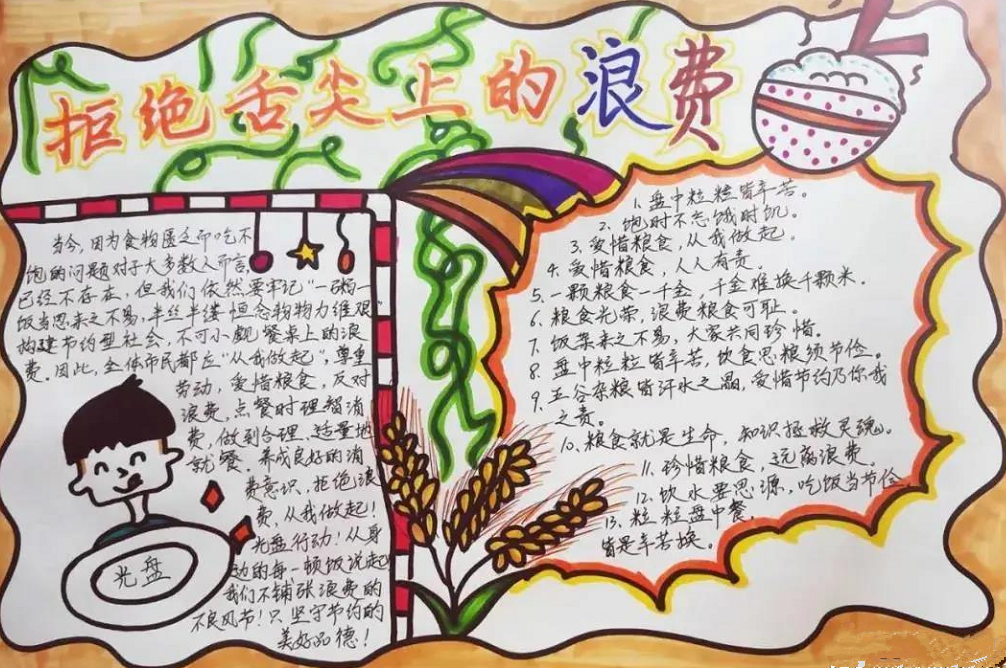 拒绝舌尖上的浪费
当今,因为食物匮乏而吃不
饱的问题对于大多数人而言,
已经不存在,但我们依然要牢记"一粥一
饭当思来之不易,半丝半缕恒念物物力维艰"
构建节约型社会,不可小觑餐桌上的浪
费。因此,全体市民都应"从我做起",尊重
劳动,爱惜粮食,反对
浪费,点餐时理智消
费,做到合理、适量地
就餐,养成良好的消
费意识,拒绝浪
费,从我做起!
光盘行动!从身
边的每一顿饭说起
我们不铺张浪费的
不良风节!只坚守节约的
美好品德!
光盘
1. 盘中粒粒皆辛苦。
2. 饱时不忘饿时饥。
3. 爱惜粮食,从我做起。
4. 爱惜粮食,人人有责。
5. 一颗粮食一千金,千金难换千颗米。
6. 粮食光荣,浪费粮食可耻。
7. 饭菜来之不易,大家共同珍惜。
8. 盘中粒粒皆辛苦,饮食思粮须节俭。
9. 五谷杂粮皆汗水之晶,爱惜节约乃你我
之责。
10. 粮食就是生命,知识拯救灵魂。
11. 珍惜粮食,远离浪费。
12. 饮水要思源,吃饭当节俭
13. 粒粒盘中餐,
皆是辛苦换。